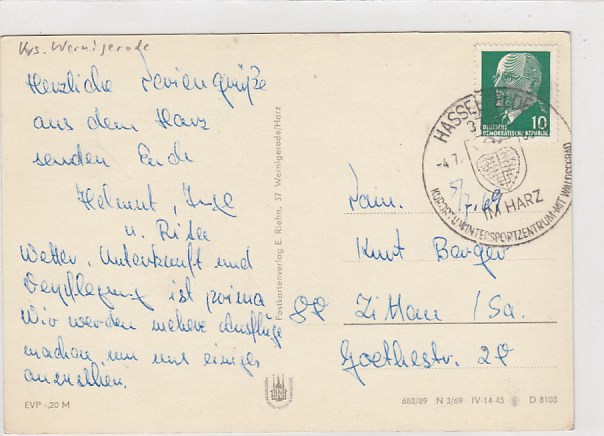 Krs. Wernigerode
Herzliche Feriengrüße
aus dem Harz
senden Euch
Helmut, Inge
u. Rita
Wetter, Unterkunft und
Verpflegung ist prima
Wir werden mehere Ausflüge
machen um uns einiges
anzusehen.
EVP -,20 M
Postkartenverlag E. Riehn, 37 Wernigerode/Harz
10
DEUTSCHE
DEMOKRATISCHE REPUBLIK
HASSERODE
-4.7.
IM HARZ
KURORT U. WINTERSPORTZENTRUM MIT WALDFREIBAD
Fam.
Kurt Berger
88 Zittau /Sa.
Goethestr. 28
688/89 N 3/69 IV-14-45 D 8108